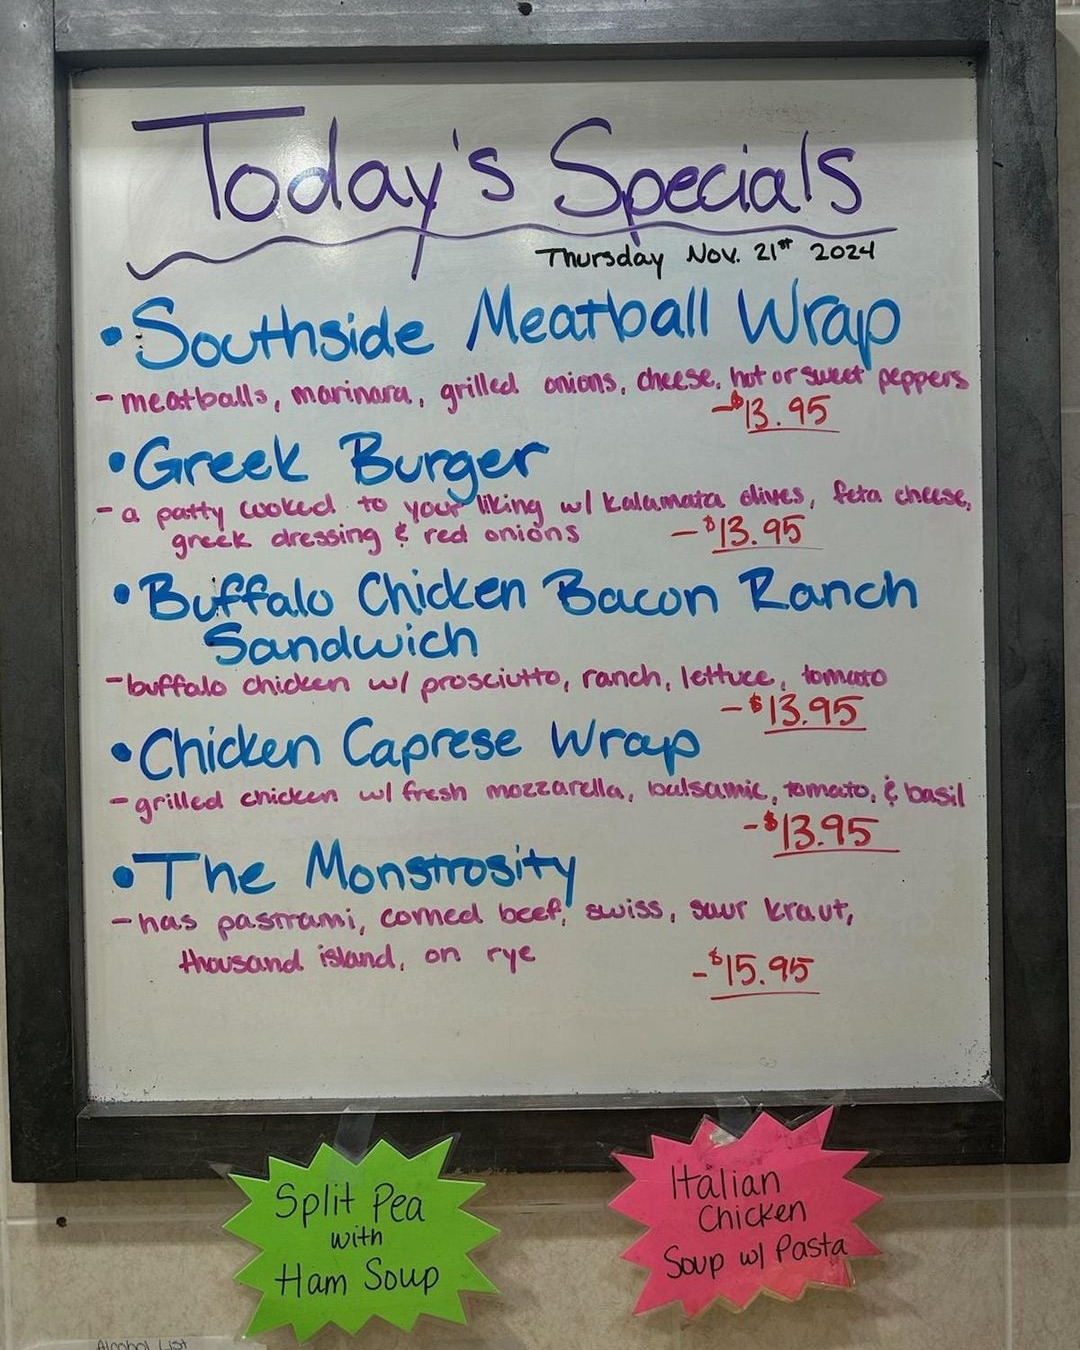 Today's Specials
Thursday Nov. 21st 2024
• Southside Meatball Wrap
- meatballs, marinara, grilled onions, cheese, hot or sweet peppers
- $13.95
• Greek Burger
- a patty cooked to your liking w/ kalamata olives, feta cheese,
greek dressing & red onions - $13.95
• Buffalo Chicken Bacon Ranch
Sandwich
- buffalo chicken w/ prosciutto, ranch, lettuce, tomato
- $13.95
• Chicken Caprese Wrap
- grilled chicken w/ fresh mozzarella, balsamic, tomato, & basil
- $13.95
• The Monstrosity
- has pastrami, corned beef, swiss, saur kraut,
thousand island, on rye - $15.95
Split Pea
with
Ham Soup
Italian
Chicken
Soup w/ Pasta
Alcohol List